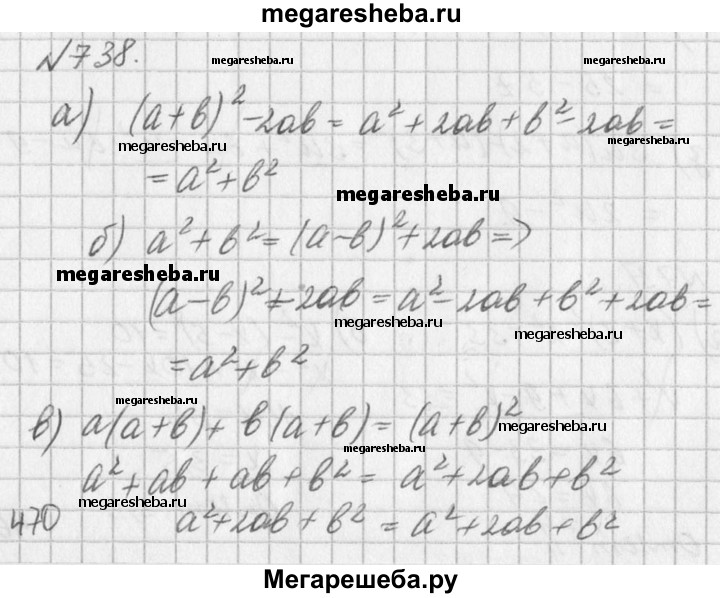 megaresheba.ru
№738.
megaresheba.ru
megaresheba.ru
а) (a+b)²-2ab = a²+2ab+b²-2ab =
megaresheba.ru
megaresheba.ru
= a²+b²
megaresheba.ru
б) a²+b² = (a-b)²+2ab =>
megaresheba.ru
(a-b)²+2ab = a²-2ab+b²+2ab =
megaresheba.ru
megaresheba.ru
= a²+b²
megaresheba.ru
в) a(a+b)+b(a+b) = (a+b)²
megaresheba.ru
megaresheba.ru
a²+ab+ab+b² = a²+2ab+b²
megaresheba.ru
470 a²+2ab+b² = a²+2ab+b²
Мегарешеба.ру